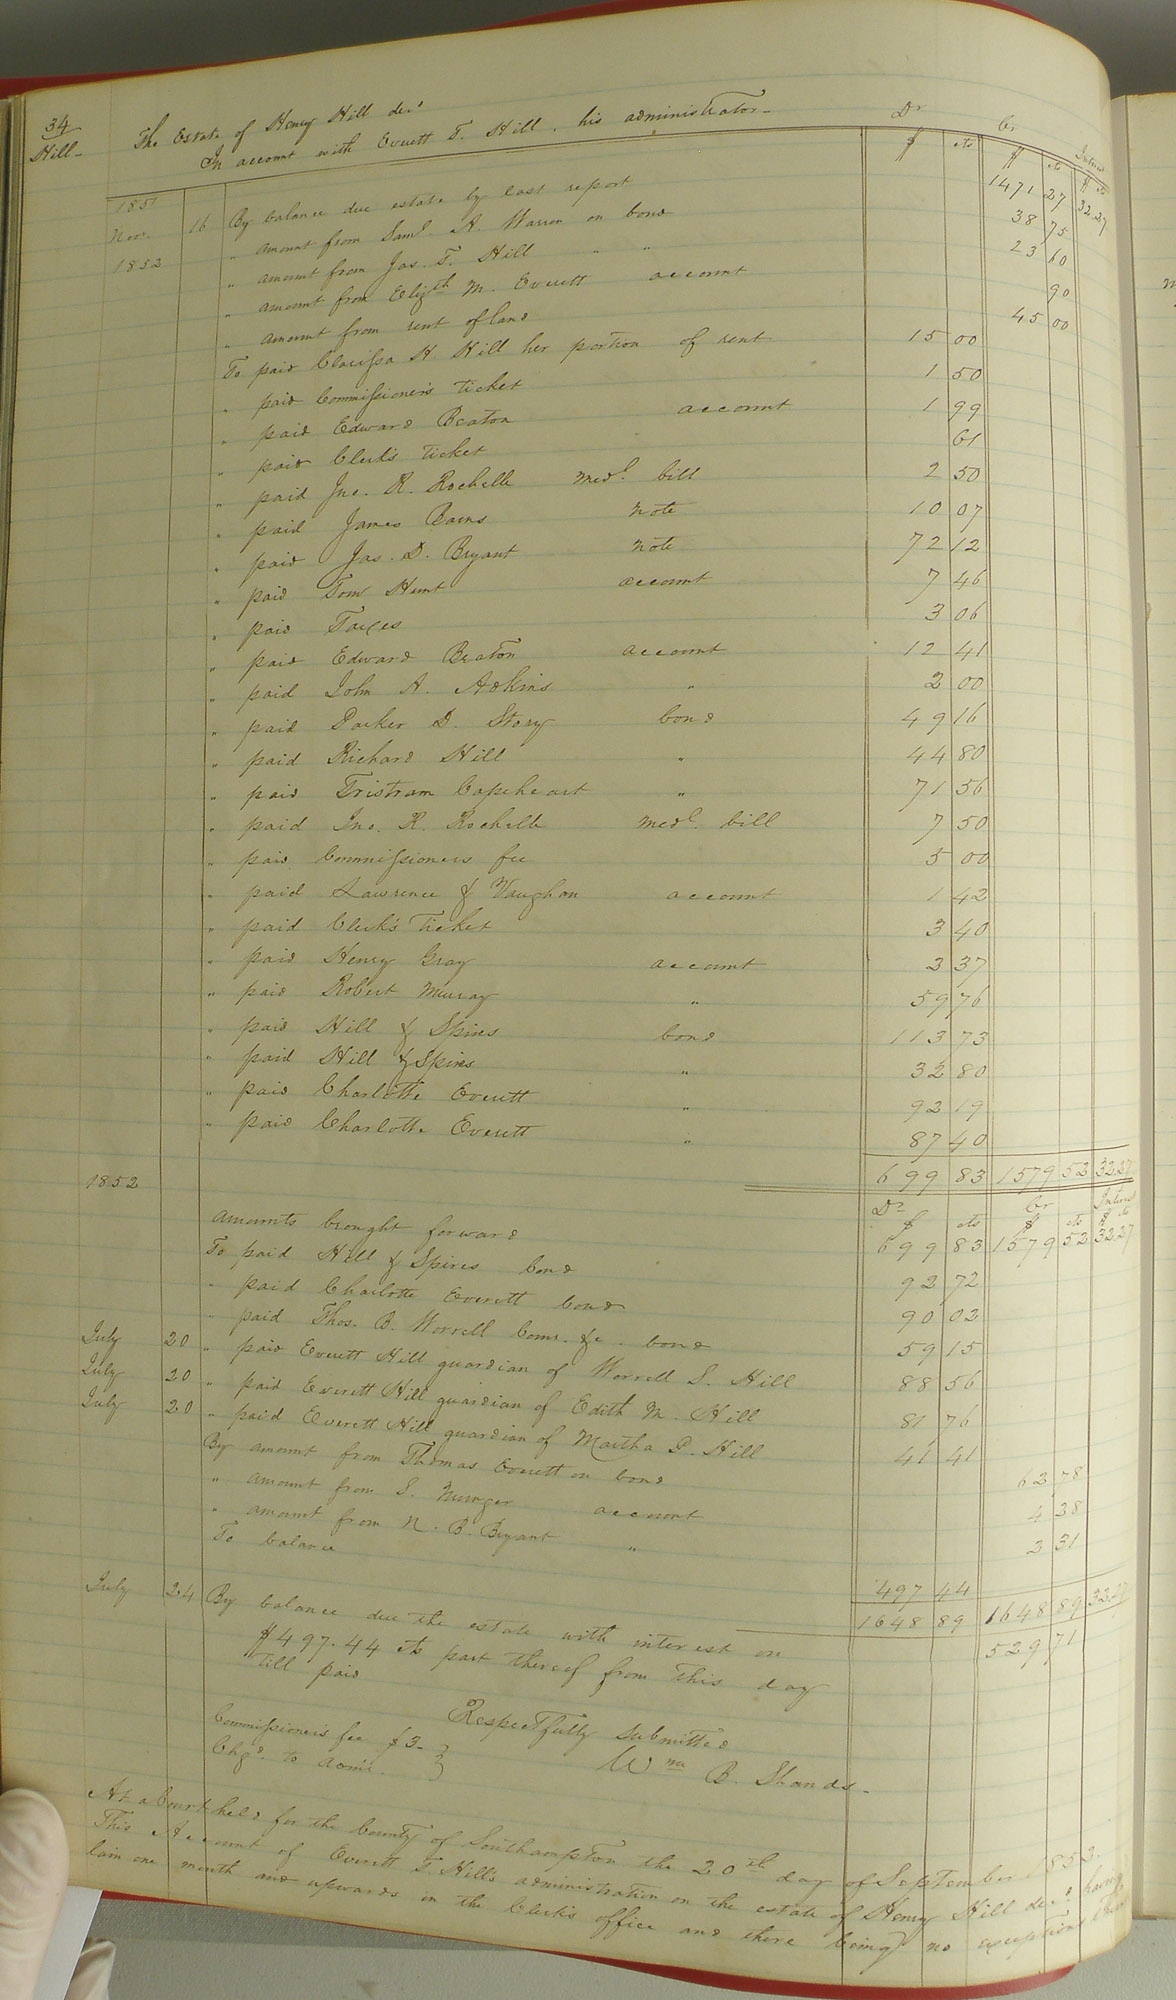 34
Hill-
The Estate of Henry Hill decd
In account with Everett T. Hill, his administrator-
Dr Cr Interest
$ cts $ cts $ cts
1851 Nov. 16 By balance due estate by last report 1471 27 32.27
1852 " amount from Saml. A. Warren on bond 38 75
" amount from Jas. T. Hill " " 23 60
" amount from Elizth M. Everett account 90
" amount from rent of land 45 00
To paid Clarissa H. Hill her portion of rent 15 00
" paid Commissioner's ticket 1 50
" paid Edward Beaton account 1 99
" paid Clerk's ticket 61
" paid Jno. R. Rochelle Medl. bill 2 50
" paid James Bains Note 10 07
" paid Jas. D. Bryant Note 72 12
" paid Tom Hunt account 7 46
" paid Taxes 3 06
" paid Edward Beaton account 12 41
" paid John A. Adkins " 2 00
" paid Parker D. Story bond 49 16
" paid Richard Hill " 44 80
" paid Tristram Capeheart " 71 56
" paid Jno. R. Rochelle Medl. bill 7 50
" paid Commissioners fee 5 00
" paid Lawrence & Vaughan account 1 42
" paid Clerk's Ticket 3 40
" paid Henry Gray account 2 37
" paid Robert Murray " 59 76
" paid Hill & Spires bond 113 73
" paid Hill & Spires " 32 80
" paid Charlotte Everett " 92 19
" paid Charlotte Everett " 87 40
699 83 1579 52 32.27
1852 Dr Cr Interest
$ cts $ cts $ cts
amounts brought forward 699 83 1579 52 32.27
To paid Hill & Spires bond 92 72
" paid Charlotte Everett bond 90 02
" paid Thos. B. Worrell Comr. &c. bond 59 15
July 20 " paid Everett Hill guardian of Worrell S. Hill 88 56
July 20 " paid Everett Hill guardian of Edith M. Hill 81 76
July 20 " paid Everett Hill guardian of Martha D. Hill 41 41
By amount from Thomas Everett on bond 62 78
" amount from S. Munger account 4 28
" amount from N. B. Bryant " 2 31
To balance 497 44
1648 89 1648 89 32.27
July 24 By balance due the estate with interest on 529 71
$497.44 cts part thereof from this day
till paid
Respectfully submitted
Wm B. Shands-
Commissioner's fee $3-
Chgd. to Admr.
At a Court held for the County of Southampton the 20th day of September 1852.
This Account of Everett T. Hill's administration on the estate of Henry Hill decd having
lain one month and upwards in the Clerk's office and there being no exceptions